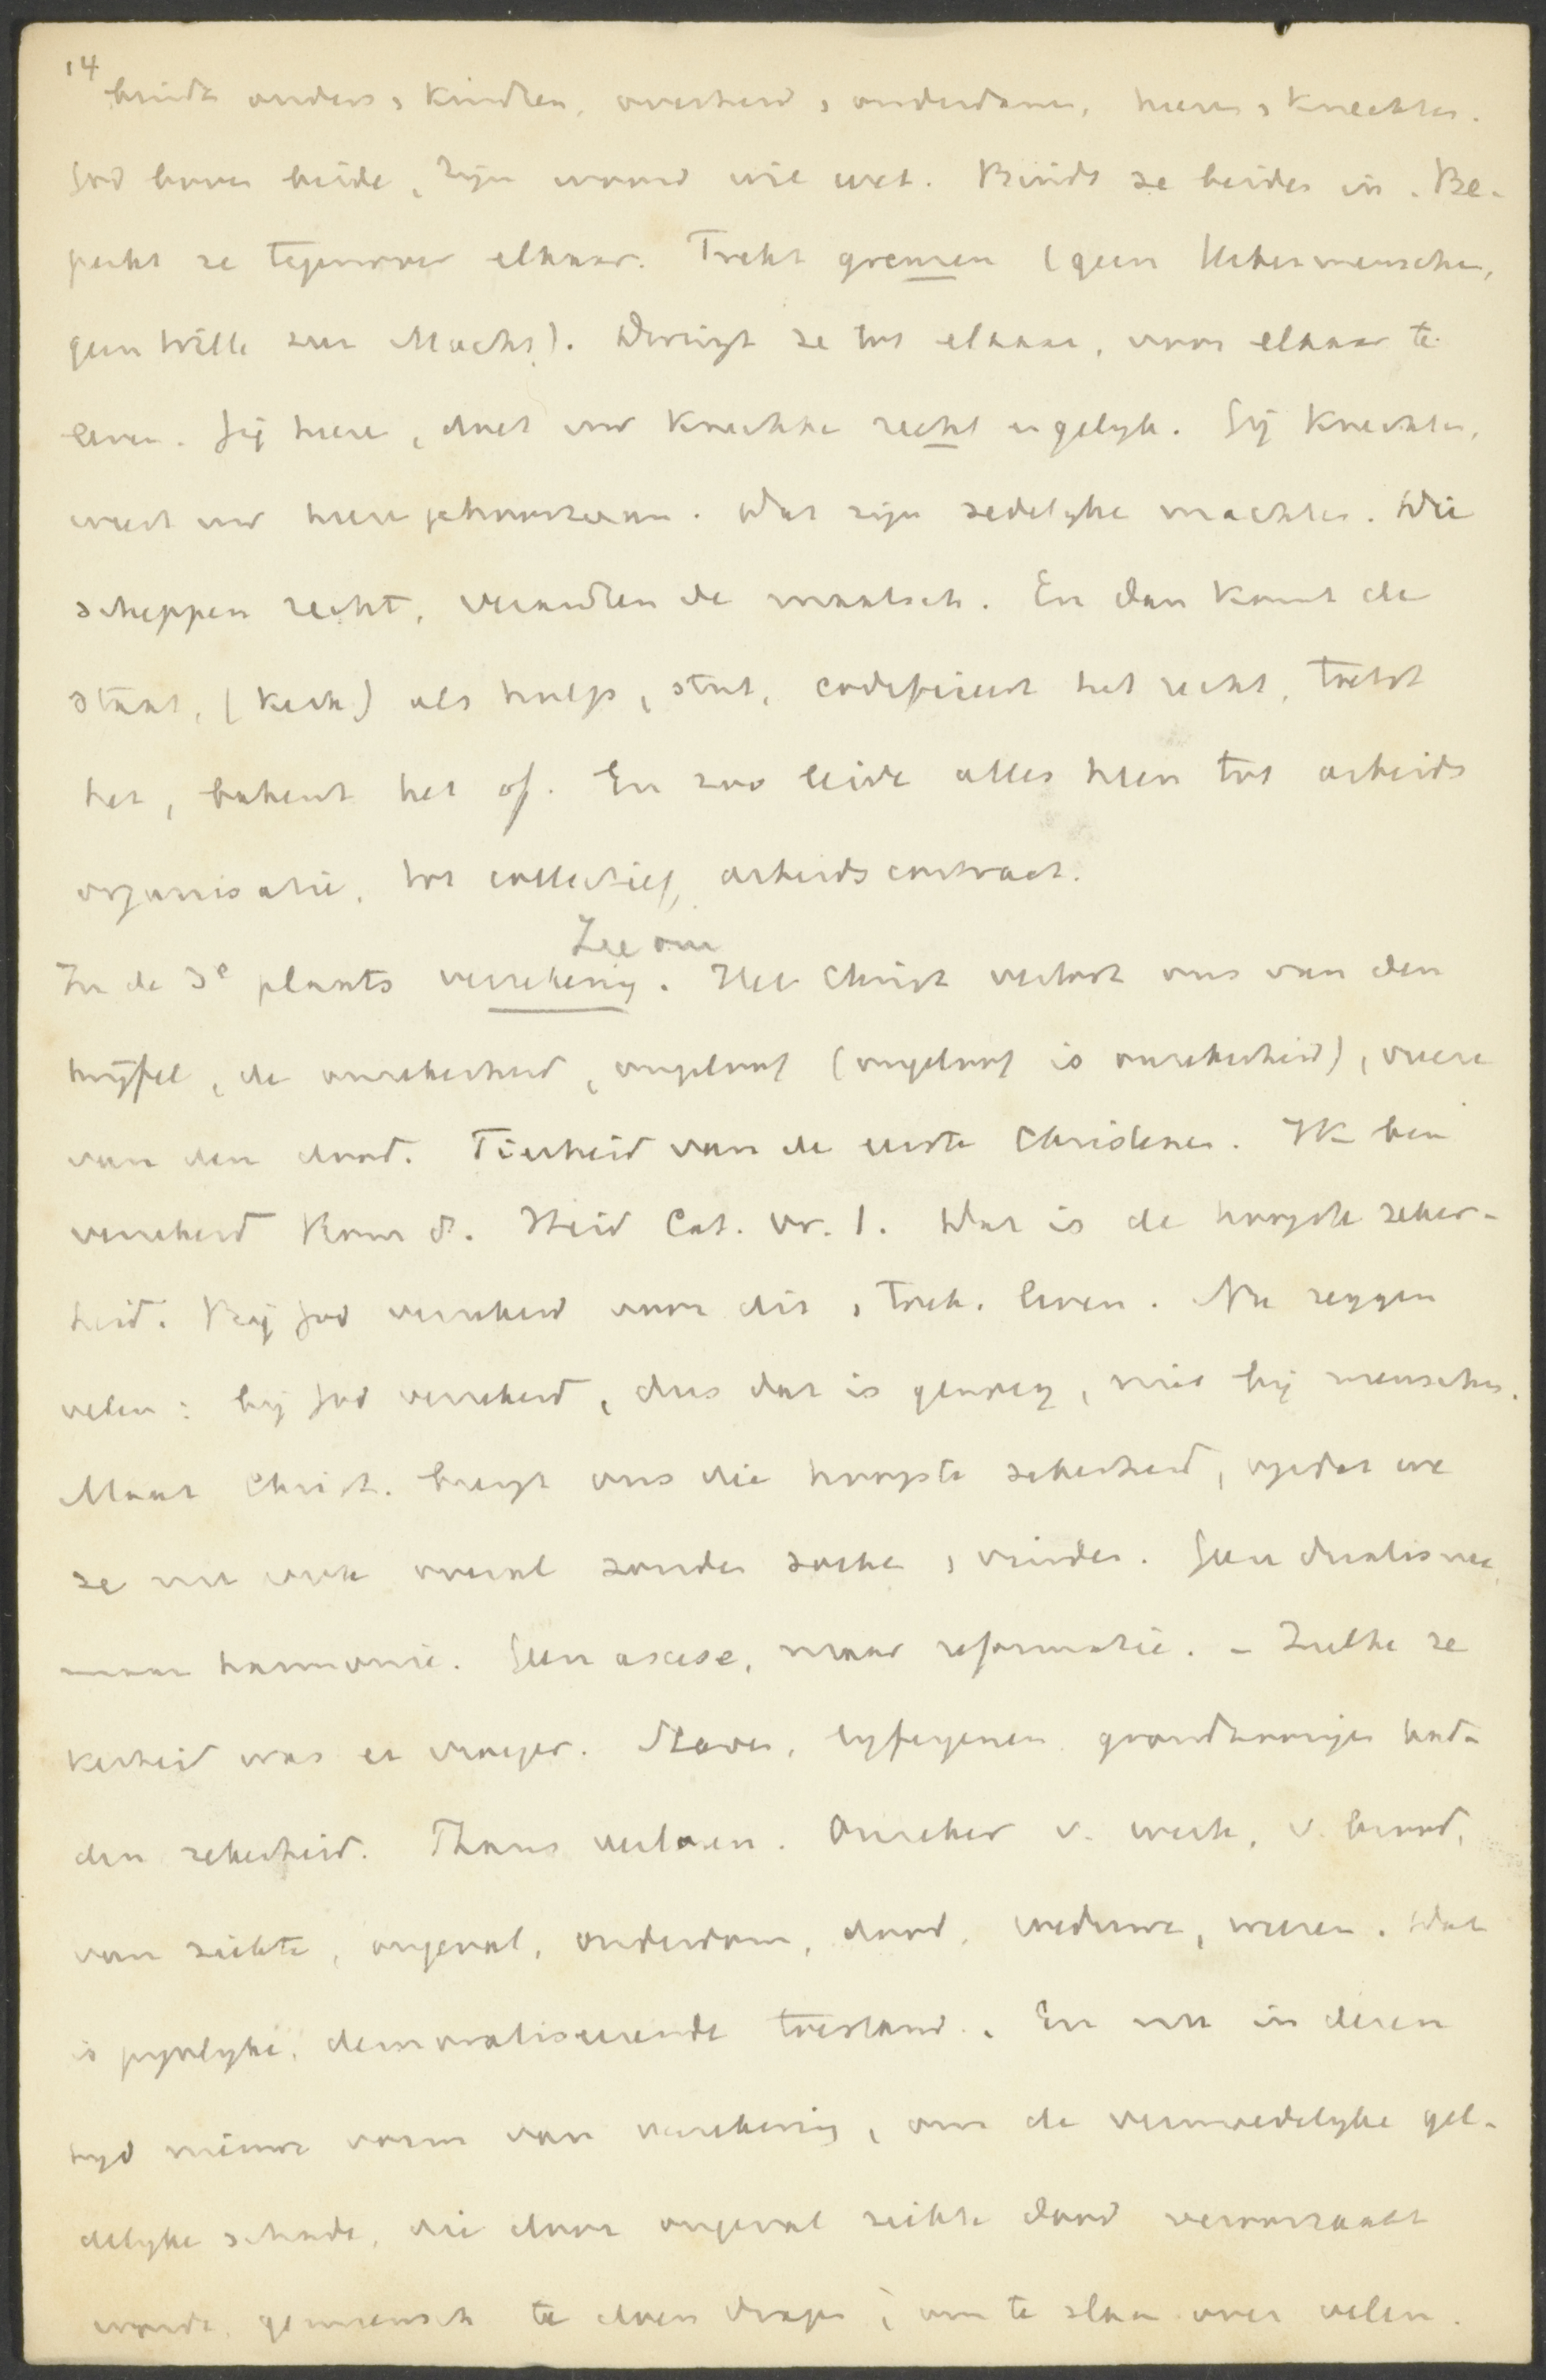 14
bindt ouders, kindren, overheid, onderdanen, heeren, knechten.
God boven beide, Zijn woord wil wet. Bindt ze beiden in. Be-
perkt ze tegenover elkaar. Trekt grenzen (geen Uebermenschen,
geen Wille zur Macht). Dwingt ze tot elkaar, voor elkaar te
leven. Gij heere, doet uw knechten recht en gelijk. Gij knechten,
weest uw heere gehoorzaam. Dat zijn zedelijke machten. Die
scheppen recht, verandren de maatsch. En dan komt de
staat, (kerk) als hulp, stut, codificeert het recht,
het, bakent het af. En zoo leide alles heen tot arbeids
organisatie, tot collectief, arbeidscontract.
Zie om
In de 3e plaats verzekering. Het Christ verlost ons van den
twijfel, de onzekerheid, ongeloof (ongeloof is onzekerheid), vreeze
van den dood. Fierheid van de eerste Christenen. Ik ben
verzekerd Rom 8. Heid Cat. vr. 1. Dat is de hoogste zeker-
heid. Bij God verzekerd voor dit, toek. leven. Nu zeggen
velen: bij God verzekerd, dus dat is genoeg, niet bij menschen.
Maar Christ. brengt ons die hoogste zekerheid, opdat we
ze nu ook overal zouden zoeken, vinden. Geen dualisme,
maar harmonie. Geen ascese, maar reformatie. - Zulke ze
kerheid was er vroeger. Slaven, lijfeigenen grondhoorigen had-
den zekerheid. Thans verloren. Onzeker v. werk, v. brood,
van ziekte, ongeval, ouderdom, dood, weduwe, weezen. Dat
is pijnlijke, demoraliseerende toestand. En nu in dezen
tijd nieuwe vorm van verzekering, om de vermoedelijke gel-
delijke schade, die door ongeval ziekte dood veroorzaakt
wordt, gemeensch te doen dragen, om te slaan over velen.